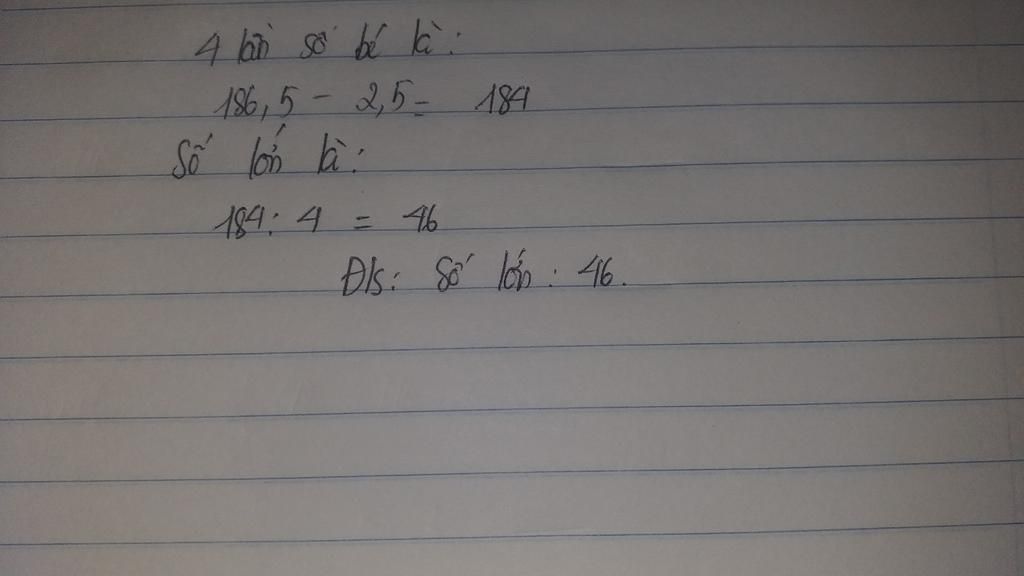 4 lần số bé là:
186,5 - 2,5 = 184
Số lớn là:
184 : 4 = 46
Đ/s: Số lớn : 46.